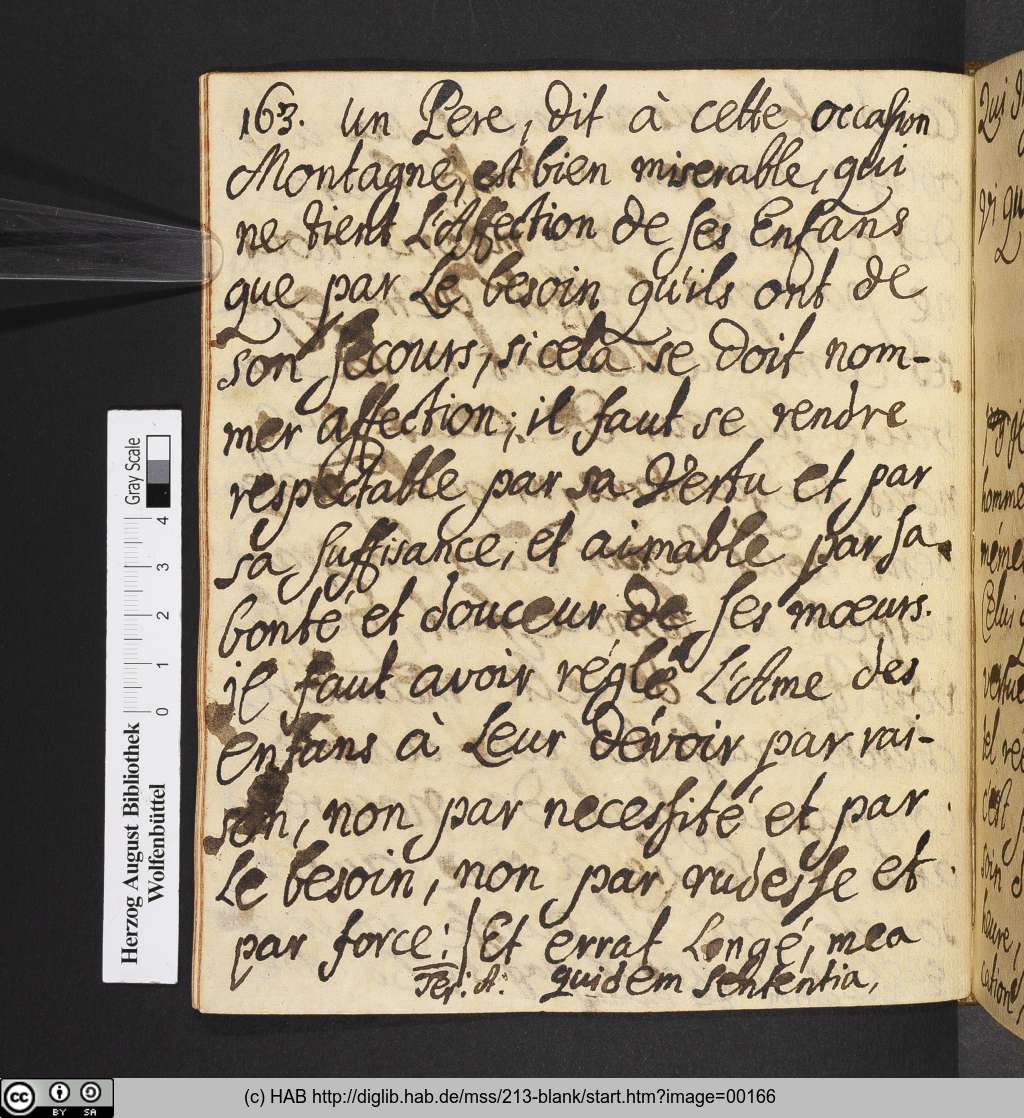 163. un Pere, dit à cette occasion
Montagne, est bien miserable, qui
ne tient L'Affection de ses Enfans
que par Le besoin qu'ils ont de
son secours, si cela se doit nom-
mer affection; il faut se rendre
respectable par sa Vertu et par
sa suffisance, et aimable par sa
bonté et douceur de ses mœurs.
il faut avoir réglé L'Ame des
enfans à Leur dévoir par rai-
son, non par necessité et par
Le besoin, non par rudesse et
par force: Et errat Longé, mea
Ter: A: quidem Sententia,
Qui
Gray Scale
4
3
2
1
0
Herzog August Bibliothek
Wolfenbüttel
cc BY SA
(c) HAB http://diglib.hab.de/mss/213-blank/start.htm?image=00166